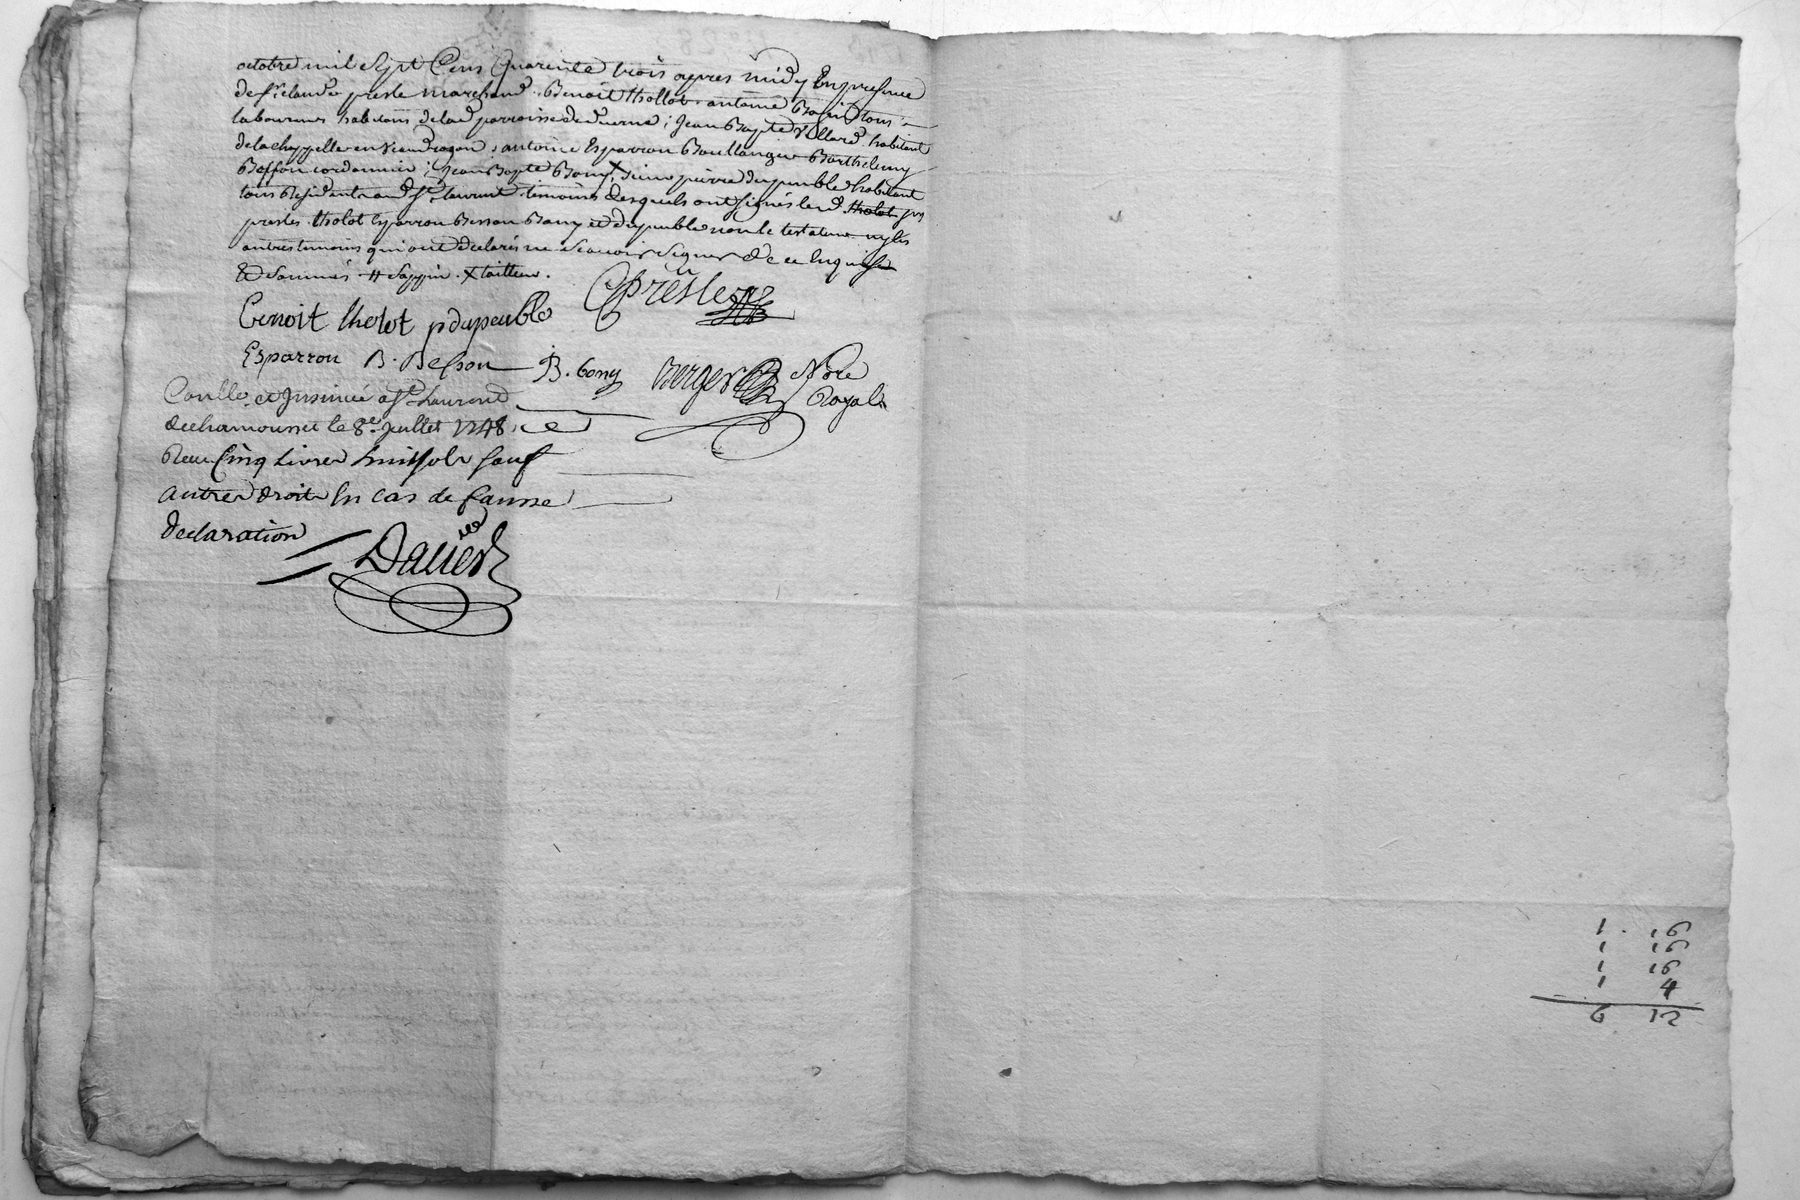 octobre mil sept Cens Quarente trois apres midy En presence
de sr. claude presle marchand. Benoit thollot. antoine tous
laboureurs habitans de lad. parroisse de ; Jean Bapte Villard habitant
de la chappelle en , antoine Esparron Boullanger Barthelemy
Besson cordonnier ; Jean Bapte Bony X sieur pierre dupeuble habitant
tous Residents aud. st. laurent temoins desquels ont signés led. tholot srs
presles tholot Esparron Besson Bony et dupeuble non le testateur ny les
autres temoins qui ont declarés ne sçauoir signer de ce Enquis
& sommés # sappin . X tailleur.
CPresle
Benoit tholot pdupeuble
Esparron B. Besson JB. bony Berger Nore
Royal
Conllé et Jnsinué a St. Laurent
de chamousset le 8e. Juillet 1748.
Receu Cinq Livres huit sols sauf
autres droits En cas de fausse
declaration
Dauier
1 . 16
1 16
1 16
1 4
6 12